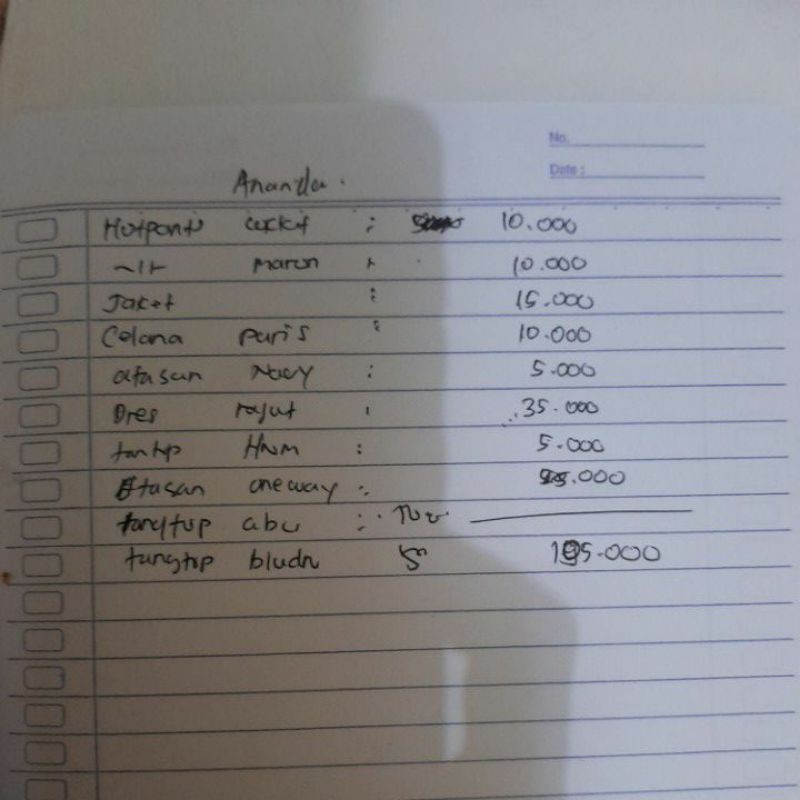 No.
Date :
Ananda.
Hotpants : 10.000
maron 10.000
Jaket : 15.000
Celana paris : 10.000
atasan Navy : 5.000
Dres rajut : 35.000
tantop HNM : 5.000
Atasan oneway : .000
tangtop abu :
tangtop bludru 5 195.000